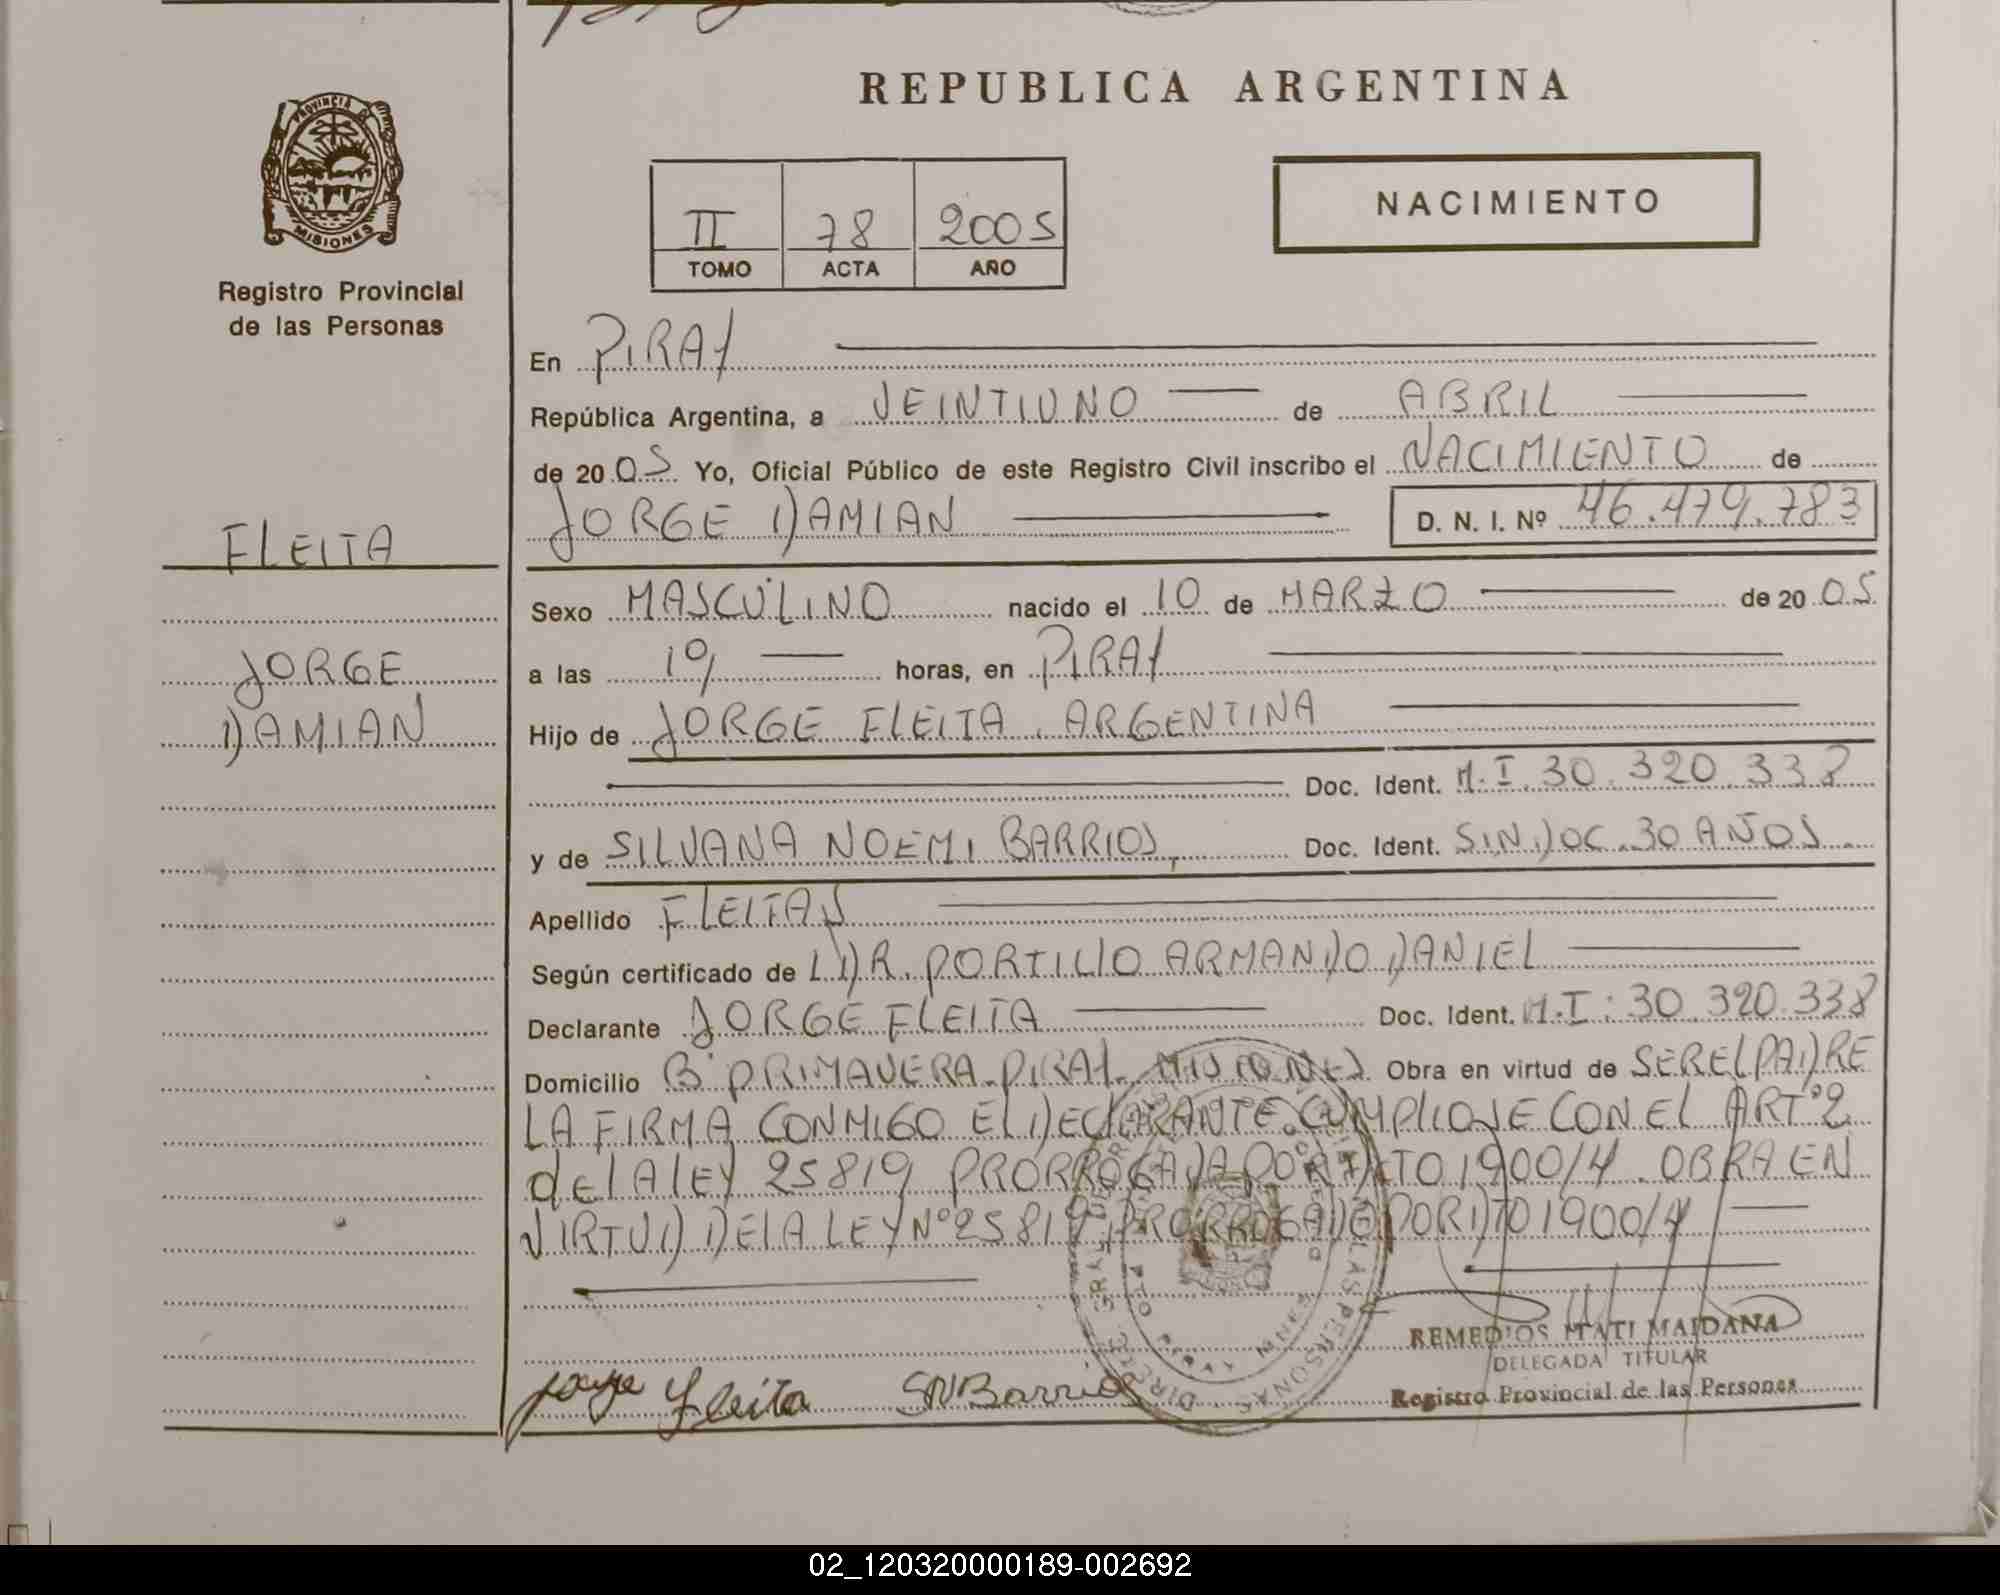 REPUBLICA ARGENTINA
PROVINCIA DE
MISIONES
Registro Provincial
de las Personas
II 78 2005
TOMO ACTA AÑO
NACIMIENTO
En PIRAY
República Argentina, a VEINTIUNO de ABRIL
de 20 05 Yo, Oficial Público de este Registro Civil inscribo el NACIMIENTO de
JORGE DAMIAN D. N. I. Nº 46.479.783
FLEITA
JORGE
DAMIAN
Sexo MASCULINO nacido el 10 de MARZO de 20 05
a las 19 horas, en PIRAY
Hijo de JORGE FLEITA. ARGENTINA
Doc. Ident. M.I. 30.320.338
y de SILVANA NOEMI BARRIOS, Doc. Ident. SIN DOC. 30 AÑOS
Apellido FLEITAS
Según certificado de DR. PORTILLO ARMANDO DANIEL
Declarante JORGE FLEITA Doc. Ident. M.I: 30.320.338
Domicilio Bº PRIMAVERA. PIRAY. MISIONES Obra en virtud de SER EL PADRE
LA FIRMA CONMIGO EL DECLARANTE. CUMPLIOSE CON EL ARTº 2
de LA LEY 25819 PRORROGADA POR DTO 1900/4. OBRA EN
VIRTUD DE LA LEY Nº 25819 PRORROGADO POR DTO 1900/4
Jorge Fleita SNBarrios
REMEDIOS ITATI MAIDANA
DELEGADA TITULAR
Registro Provincial de las Personas
02_120320000189-002692